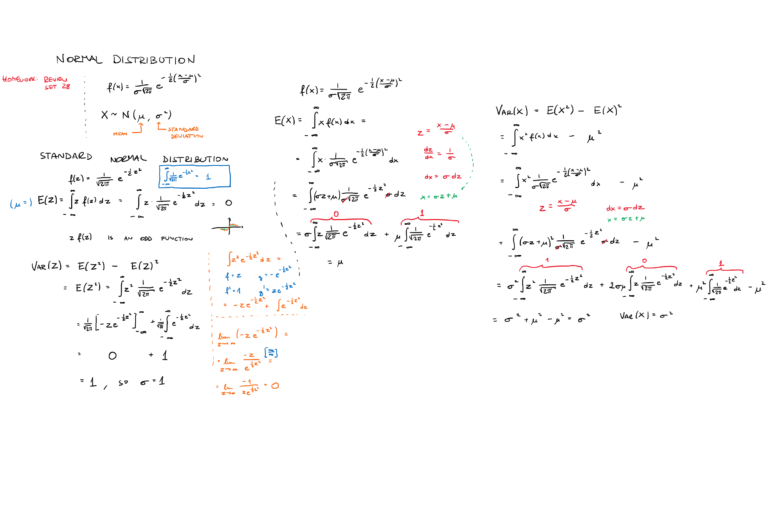 NORMAL DISTRIBUTION
HOMEWORK: REVIEW
SET 28
f(x) = 1/(σ√2π) e^(-½((x-μ)/σ)²)
X ~ N(μ, σ²)
MEAN
STANDARD
DEVIATION
STANDARD NORMAL DISTRIBUTION
f(z) = 1/√2π e^(-½z²)
∫_{-∞}^{∞} 1/√2π e^(-½z²) = 1
(μ=) E(Z) = ∫_{-∞}^{∞} z f(z) dz = ∫_{-∞}^{∞} z · 1/√2π e^(-½z²) dz = 0
z f(z) IS AN ODD FUNCTION
VAR(Z) = E(Z²) - E(Z)²
= E(Z²) = ∫_{-∞}^{∞} z² 1/√2π e^(-½z²) dz
= 1/√2π [-z e^(-½z²)]_{-∞}^{∞} + 1/√2π ∫_{-∞}^{∞} e^(-½z²) dz
= 0 + 1
= 1, so σ=1
∫z² e^(-½z²) dz =
f = z g = -e^(-½z²)
f' = 1 g' = z e^(-½z²)
= -z e^(-½z²) + ∫e^(-½z²) dz
lim_{z→∞} (-z e^(-½z²)) =
= lim_{z→∞} -z/e^(½z²) [∞/∞] =
= lim_{z→∞} -1/(z e^(½z²)) = 0
f(x) = 1/(σ√2π) e^(-½((x-μ)/σ)²)
E(X) = ∫_{-∞}^{∞} x f(x) dx =
= ∫_{-∞}^{∞} x · 1/(σ√2π) e^(-½((x-μ)/σ)²) dx
= ∫_{-∞}^{∞} (σz+μ) 1/(σ√2π) e^(-½z²) σ dz
0 1
= σ ∫_{-∞}^{∞} z 1/√2π e^(-½z²) dz + μ ∫_{-∞}^{∞} 1/√2π e^(-½z²) dz
= μ
z = (x-μ)/σ
dz/dx = 1/σ
dx = σ dz
x = σz + μ
VAR(X) = E(X²) - E(X)²
= ∫_{-∞}^{∞} x² f(x) dx - μ²
= ∫_{-∞}^{∞} x² 1/(σ√2π) e^(-½((x-μ)/σ)²) dx - μ²
z = (x-μ)/σ dx = σ dz
x = σz + μ
= ∫_{-∞}^{∞} (σz+μ)² 1/(σ√2π) e^(-½z²) σ dz - μ²
1 0 1
= σ² ∫_{-∞}^{∞} z² 1/√2π e^(-½z²) dz + 2σμ ∫_{-∞}^{∞} z 1/√2π e^(-½z²) dz + μ² ∫_{-∞}^{∞} 1/√2π e^(-½z²) dz - μ²
= σ² + μ² - μ² = σ² Var(X) = σ²